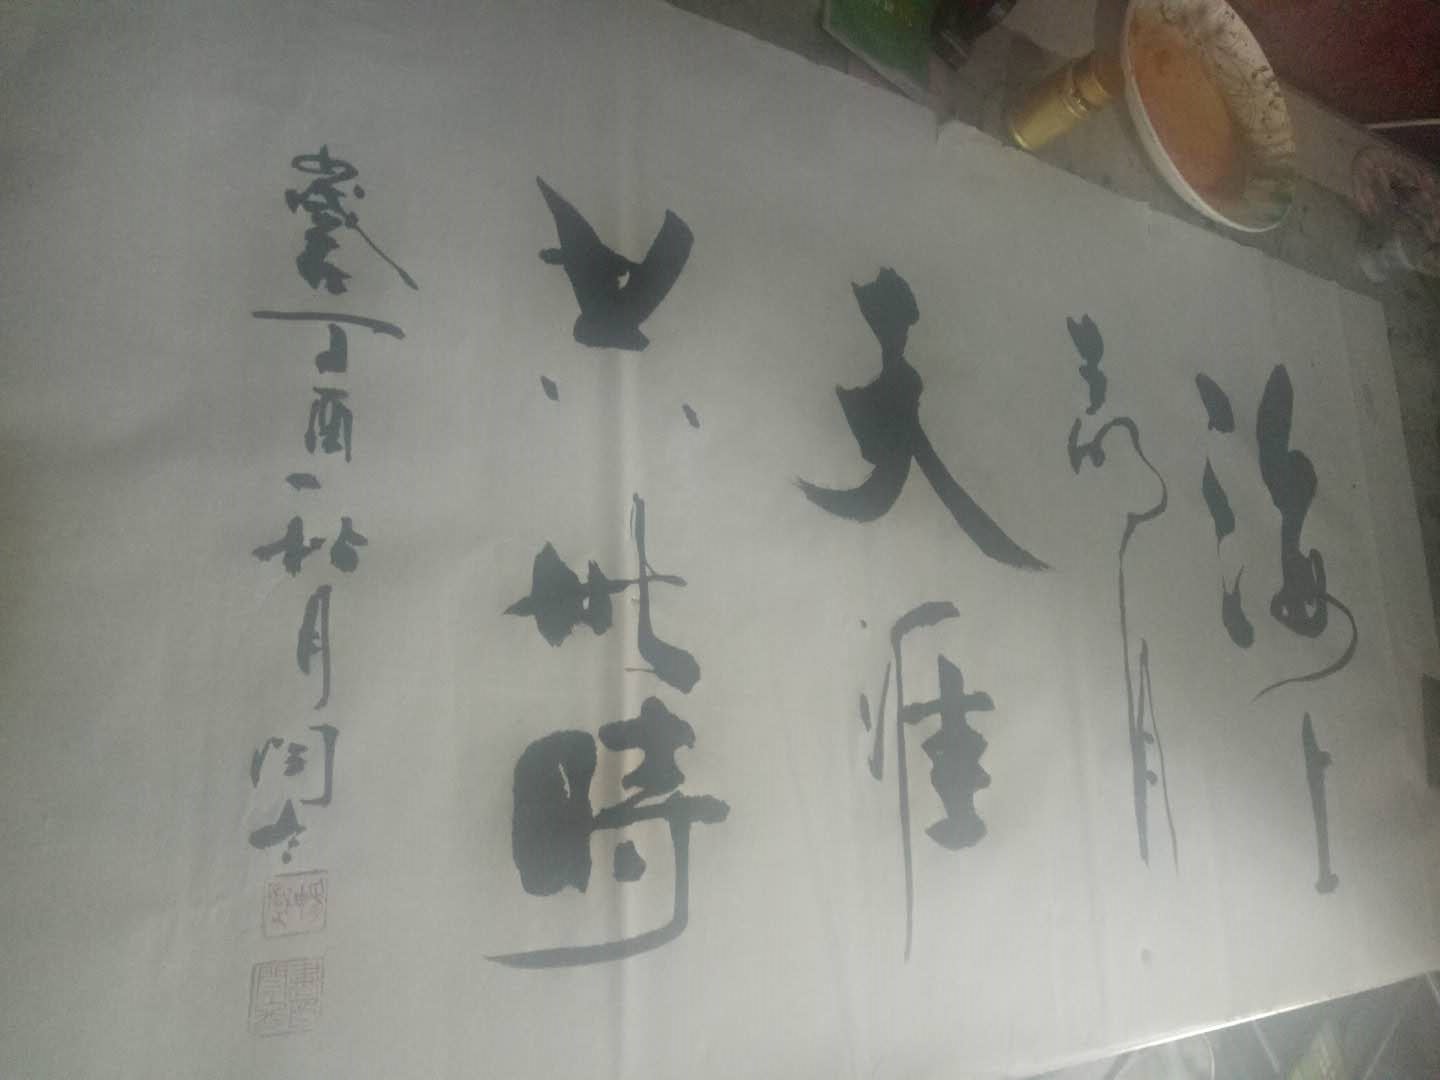 海上
生明月
天涯
共此時
歲丁酉秋月